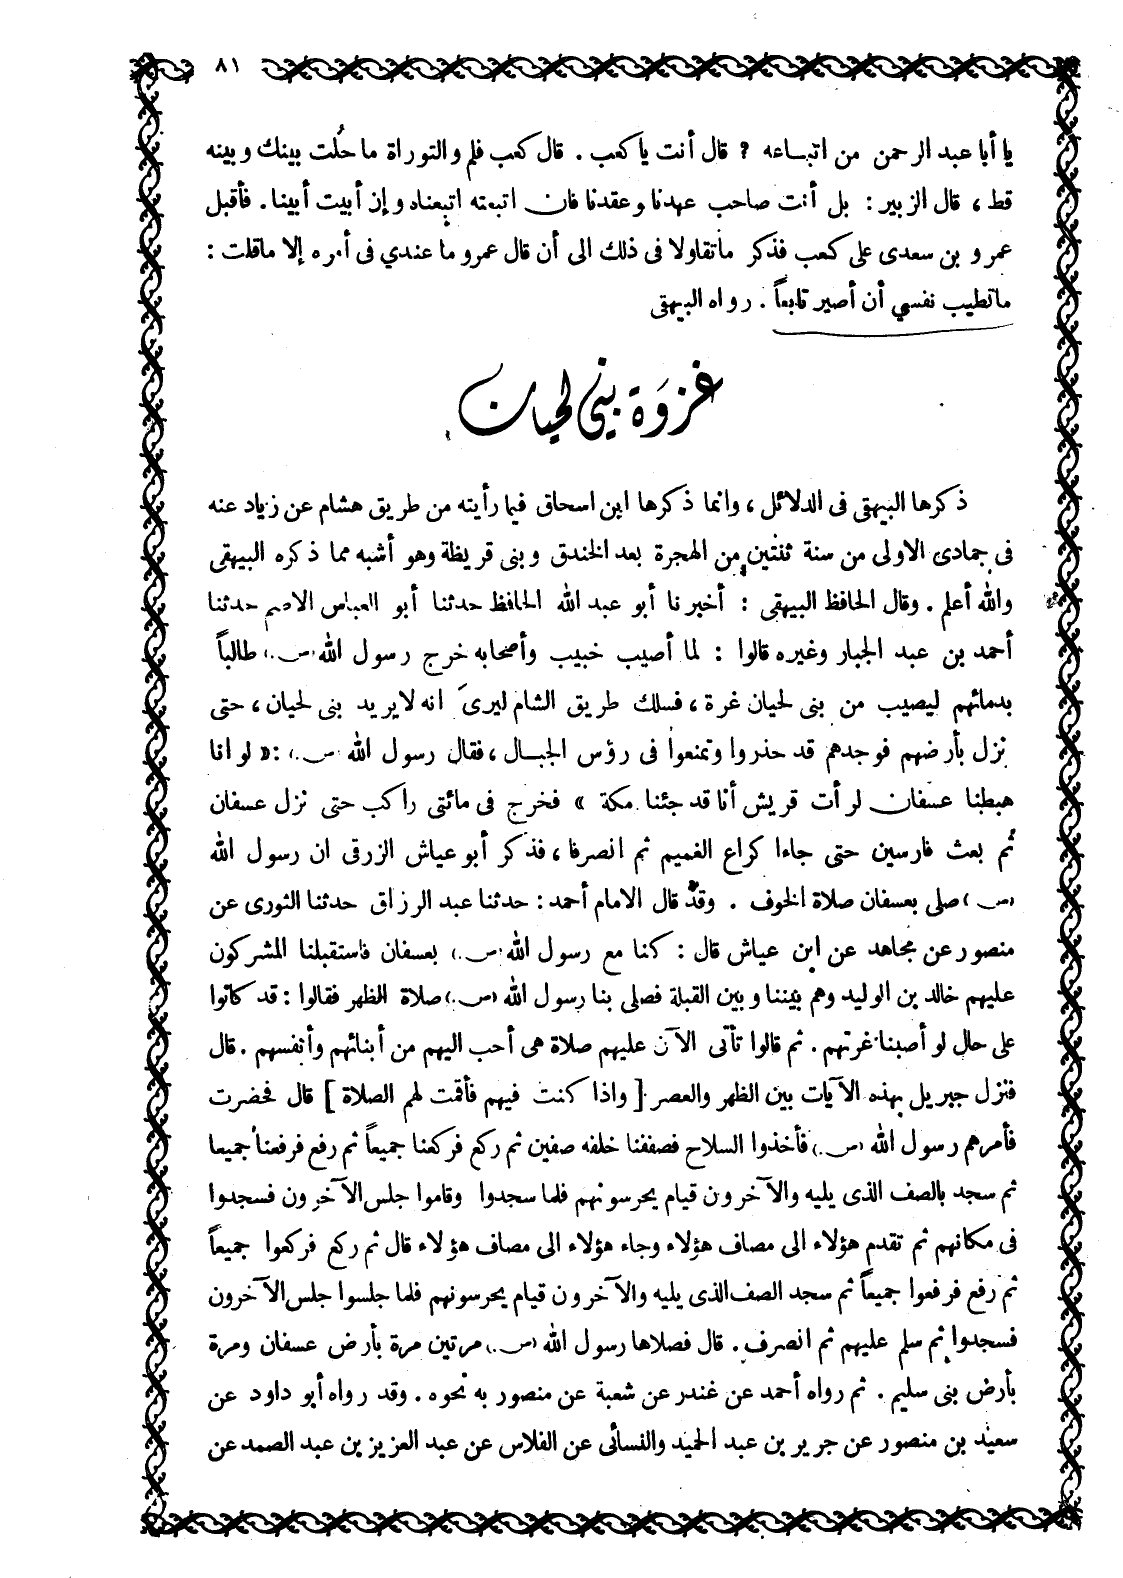 ٨١
يا أبا عبد الرحمن من اتبـاعه ? قال أنت يا كعب . قال كعب فلم والتوراة ما حُلت بينك وبينه
قط ، قال الزبير : بل أنت صاحب عهدنا وعقدنا فان اتبعته اتبعناه وإن أبيت أبينا . فأقبل
عمرو بن سعدى على كعب فذكر ماتقاولا فى ذلك الى أن قال عمرو ما عندي فى أمره إلا ماقلت :
ماتطيب نفسي أن أصير تابعاً . رواه البيهقى
غزوة بني لحيان
ذكرها البيهقى فى الدلائل ، وانما ذكرها ابن اسحاق فيما رأيته من طريق هشام عن زياد عنه
فى جمادى الاولى من سنة ثنتين من الهجرة بعد الخندق وبنى قريظة وهو أشبه مما ذكره البيهقى
والله أعلم . وقال الحافظ البيهقى : أخبرنا أبو عبد الله الحافظ حدثنا أبو العباس الاصم حدثنا
أحمد بن عبد الجبار وغيره قالوا : لما أصيب خبيب وأصحابه خرج رسول الله (ص.) طالباً
بدمائهم ليصيب من بنى لحيان غرة ، فسلك طريق الشام ليرىَ انه لايريد بنى لحيان ، حتى
نزل بأرضهم فوجدهم قد حذروا وتمنعوا فى رؤس الجبـال ، فقال رسول الله (ص.) : « لو انا
هبطنا عسفان لرأت قريش أنا قد جئنا مكة » فخرج فى مائتى راكب حتى نزل عسفان
ثم بعث فارسين حتى جاءا كراع الغميم ثم انصرفا ، فذكر أبو عياش الزرقى ان رسول الله
(ص.) صلى بعسفان صلاة الخوف . وقد قال الامام أحمد : حدثنا عبد الرزاق حدثنا الثورى عن
منصور عن مجاهد عن ابن عياش قال : كنا مع رسول الله (ص.) بعسفان فاستقبلنا المشركون
عليهم خالد بن الوليد وهم بيننا وبين القبلة فصلى بنا رسول الله (ص.) صلاة الظهر فقالوا : قد كانوا
على حال لو أصبنا غرتهم . ثم قالوا تأتى الآن عليهم صلاة هى أحب اليهم من أبنائهم وأنفسهم . قال
فنزل جبريل بهذه الآيات بين الظهر والعصر [ واذا كنت فيهم فأقمت لهم الصلاة ] قال فحضرت
فأمرهم رسول الله (ص.) فأخذوا السلاح فصففنا خلفه صفين ثم ركع فركعنا جميعاً ثم رفع فرفعنا جميعا
ثم سجد بالصف الذى يليه والآخرون قيام يحرسونهم فلما سجدوا وقاموا جلس الآخرون فسجدوا
فى مكانهم ثم تقدم هؤلاء الى مصاف هؤلاء وجاء هؤلاء الى مصاف هؤلاء قال ثم ركع فركعوا جميعاً
ثم رفع فرفعوا جميعاً ثم سجد الصف الذى يليه والآخرون قيام يحرسونهم فلما جلسوا جلس الآخرون
فسجدوا ثم سلم عليهم ثم انصرف . قال فصلاها رسول الله (ص.) مرتين مرة بأرض عسفان ومرة
بأرض بنى سليم . ثم رواه أحمد عن غندر عن شعبة عن منصور به نحوه . وقد رواه أبو داود عن
سعيد بن منصور عن جرير بن عبد الحميد والنسائى عن الفلاس عن عبد العزيز بن عبد الصمد عن